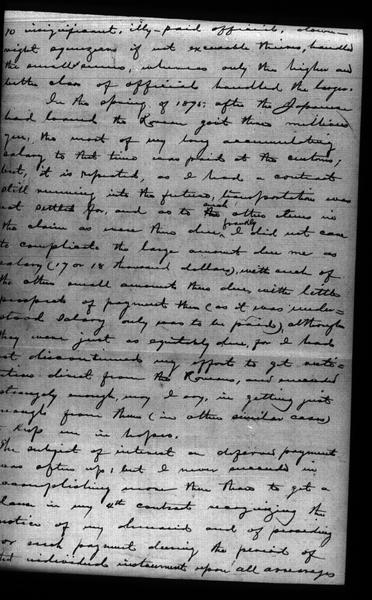 to insignificant, illy-paid officials, down-
right squeezers if not excusable thieves, handled
the small sums, whereas only the higher and
better class of official handled the larger.
In the spring of 1895, after the Japanese
had loaned the Korean gov't three million
yen, the most of my long accumulating
salary to that time was paid at the customs,
but, it is reputed, as I had a contract
still running into the future, transportation was
not settled for, and as to such other items in
the claim as were then due, frankly I did not care
to complicate the large amount due me as
salary (17 or 18 thousand dollars), with such of
the other small amounts then due, with little
prospects of payment then (as it was under-
stood salary only was to be paid), although
they were just as equitably due, for I had
not discontinued my efforts to get
direct from the Koreans, and succeeded
strangely enough, may I say, in getting just
enough from them (in other similar cases)
to keep me in hopes.
The subject of interest on deferred payment
was often up, but I never succeeded in
accomplishing more than that to get a
clause in my 4th contract recognizing the
notice of my demand and of providing
for such payment during the period of
that individual instrument upon all arrearages